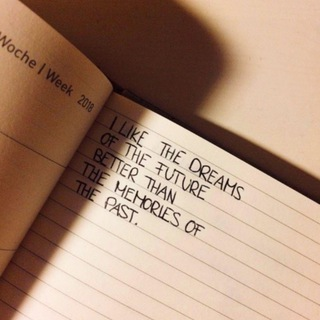 Woche | Week 2018
I LIKE THE DREAMS
OF THE FUTURE
BETTER THAN
THE MEMORIES OF
THE PAST.